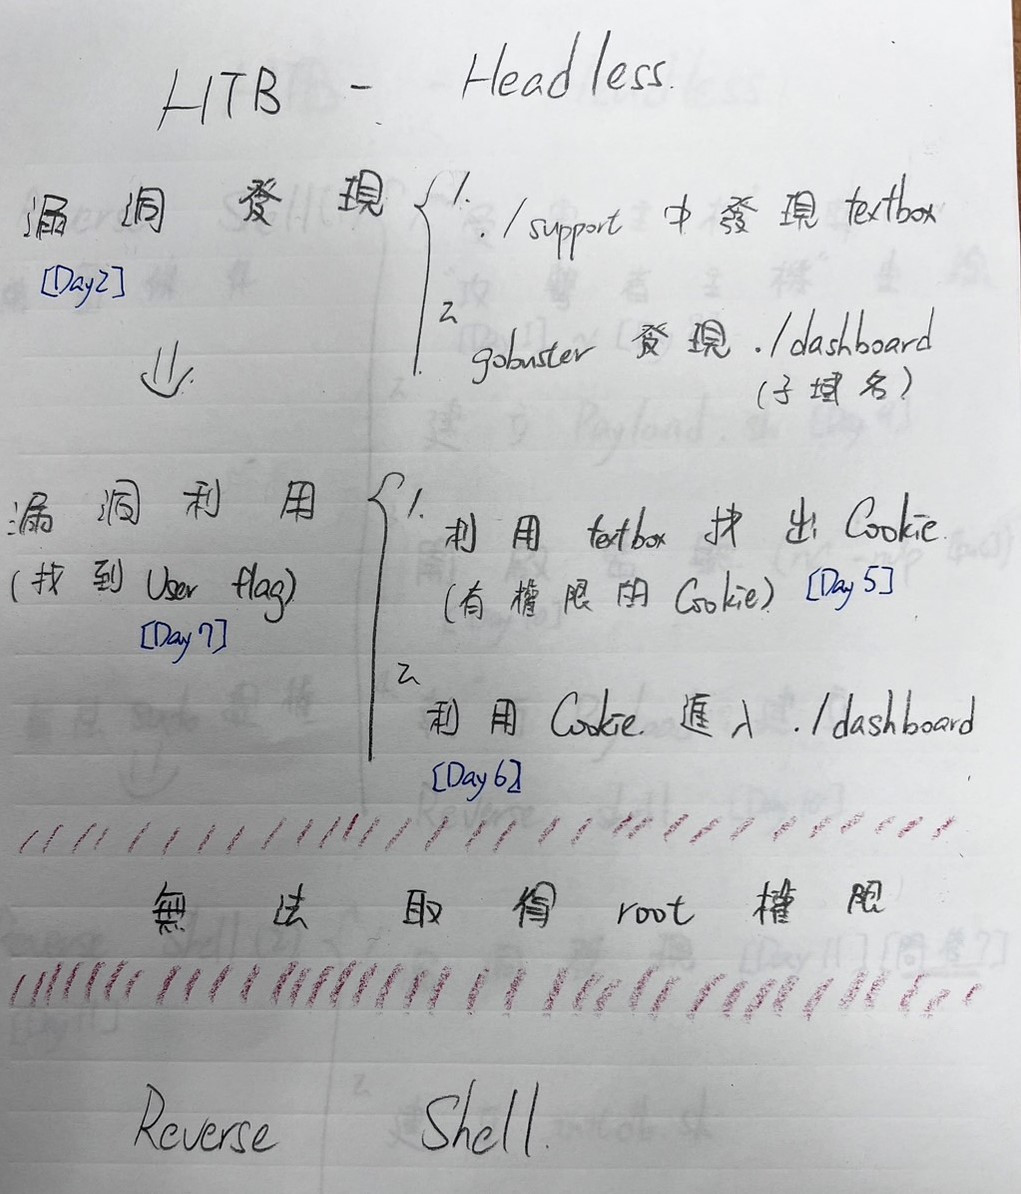 HTB - Headless.
漏洞發現
[Day2]
1. ./support 中發現 textbox
2. gobuster 發現 ./dashboard
(子域名)
漏洞利用
(找到 User flag)
[Day7]
1. 利用 textbox 找出 Cookie.
(有權限的 Cookie) [Day5]
2. 利用 Cookie. 進入 ./dashboard
[Day6]
無法取得 root 權限
Reverse Shell.